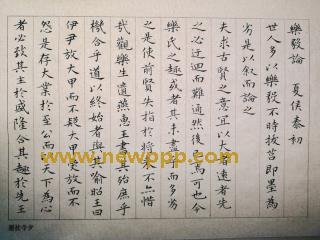 樂毅論 夏侯泰初
世人多以樂毅不時拔莒即墨為
劣是以叙而論之
夫求古賢之意宜以大者遠者先
之必迂迴而難通然後已焉可也今
樂氏之趣或者其未盡乎而多劣
之是使前賢失指於將來不亦惜
哉觀樂生遺燕惠王書其殆庶乎
機合乎道以終始者與其喻昭王曰
伊尹放大甲而不疑大甲受放而不
怨是存大業於至公而以天下為心
者必致其主於盛隆合其趣於先王
www.newppp.com